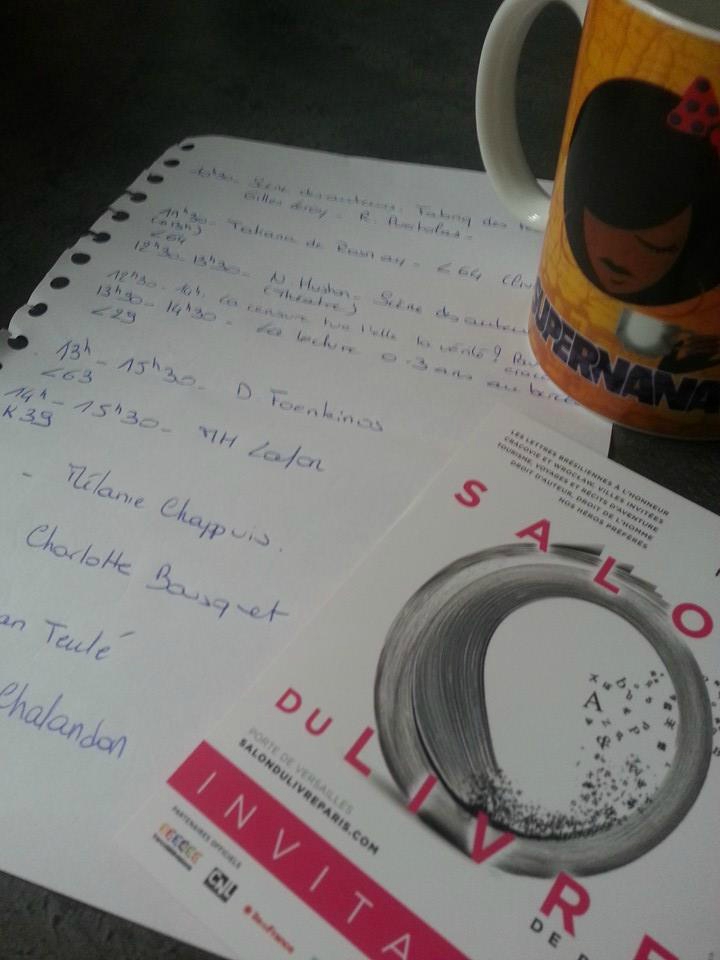 10h30 - Scène des auteurs.
Gilles Leroy -
11h30 - Tatiana de Rosnay - L64
(à 13h)
L64
12h30 - 13h30 - N. Huston - Scène des auteurs
(théâtre)
12h30 - 14h. La censure tue t'elle la vérité ?
13h30 - 14h30 - La lecture 0-3 ans
L29
13h - 15h30 - D Foenkinos
L63
14h - 15h30 - MH Lafon
K39
- Mélanie Chappuis.
Charlotte Bousquet
an Teulé
Chalandon
SUPERNANA
LES LETTRES BRÉSILIENNES À L'HONNEUR
CRACOVIE ET WROCŁAW, VILLES INVITÉES
TOURISME, VOYAGES ET RÉCITS D'AVENTURE
DROIT D'AUTEUR, DROIT DE L'HOMME
NOS HÉROS PRÉFÉRÉS
SALO
DU LIVRE
DE P
PORTE DE VERSAILLES
SALONDULIVREPARIS.COM
INVITA
PARTENAIRES OFFICIELS
CNL
île de France